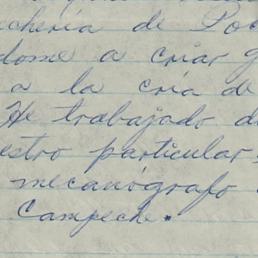 chería de Pob
dome a criar g
a la cría de
He trabajado de
estro particular
mecanógrafo
Campeche.